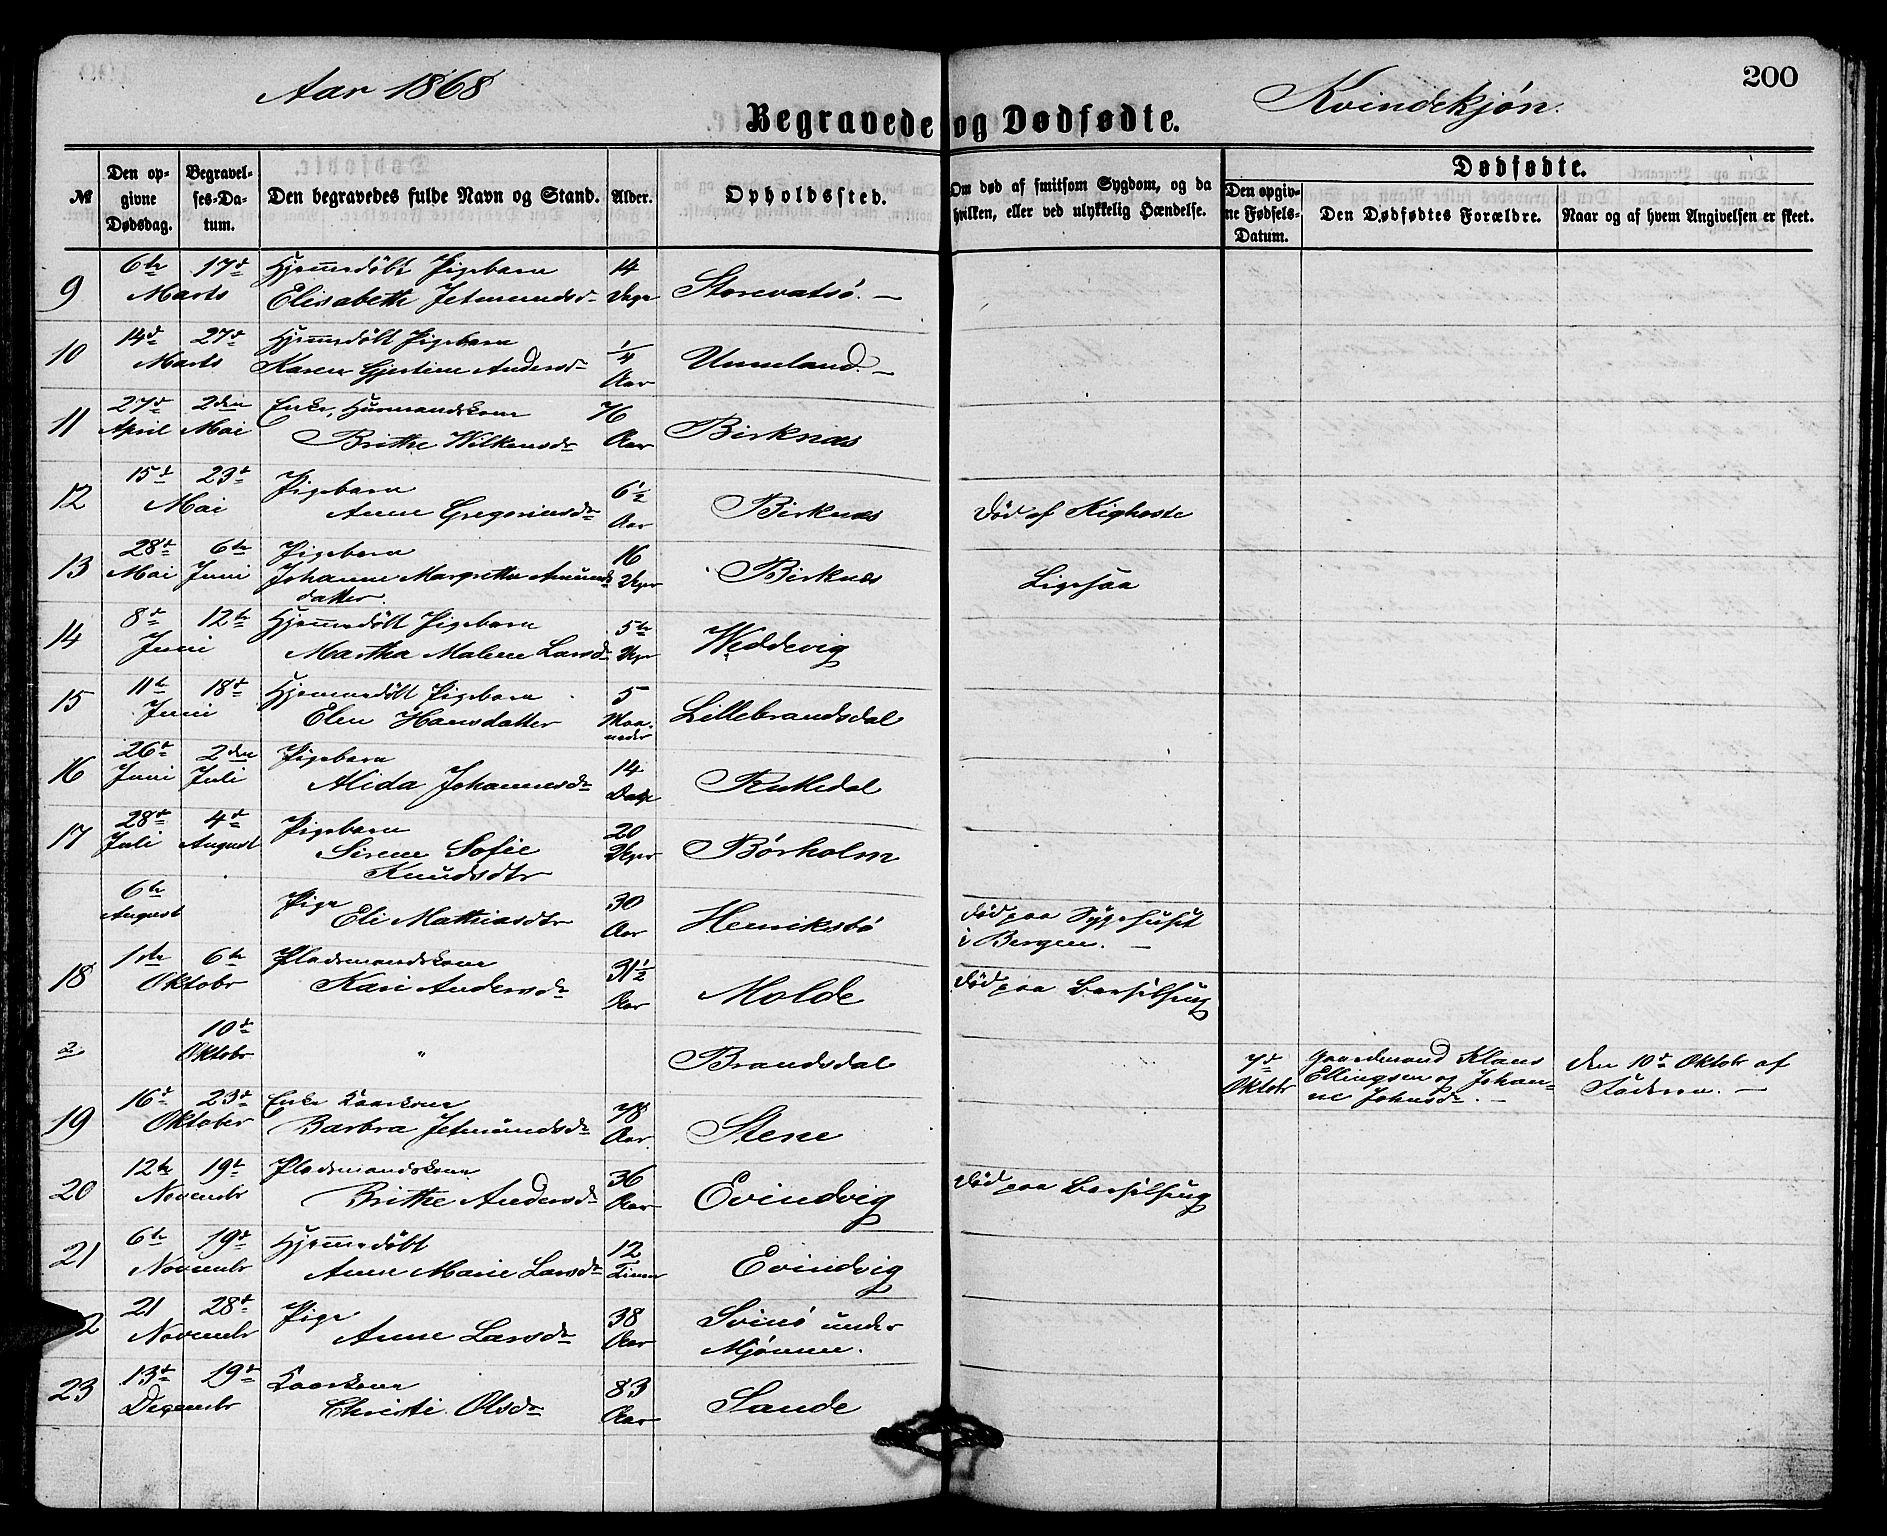 Aar 1868
Kvindekjøn.
200
Begravede og Dødfødte.
№
Den op-
givne
Dødsdag.
Begravel-
ses-Da-
tum.
Den begravedes fulde Navn og Stand.
Alder.
Opholdssted.
Om død af smitsom Sygdom, og da
hvilken, eller ved ulykkelig Hændelse.
Dødfødte.
Den opgiv-
ne Fødsels-
Datum.
Den Dødfødtes Forældre.
Naar og af hvem Angivelsen er skeet.
9 6te 17de Marts Hjemmedøbt Pigebarn
Elisabeth Jetmundsdr 14 Uger Storevatsø. —
10 14de 27de Marts Hjemmedøbt Pigebarn
Karen Gjertine Andersdr 1/4 Aar Unneland. —
11 27de April 2den Mai Enke, Huusmandskone
Brithe Wilkensdr 76 Aar Birknæs
12 15de 23de Mai Pigebarn
Anne Gregoriusdr 6½ Aar Birknæs Død af Kighoste
13 28de Mai 6te Juni Pigebarn
Johanne Margrethe Amunds
datter. 16 Uger Birknæs Ligesaa
14 8de 12te Juni Hjemmedøbt Pigebarn
Martha Malene Larsdr 5te Uger Weddevig
15 11te 18de Juni Hjemmedøbt Pigebarn
Elen Hansdatter 5 Maa-
neder Lillebrandsdal
16 26de Juni 2den Juli Pigebarn
Alida Johannesdr 14 Dage Rukedal
17 28de Juli 4de August Pigebarn
Sirene Sofie
Knudsdtr 20 Uger Børholm
6te August Pige
Eli Mathiasdtr 30 Aar Henrikstø Død paa Sygehuset
i Bergen. —
18 1ste 6te Oktobr Pladsmandskone
Kari Andersdr 31½ Aar Molde Død paa Barselseng
2 10de Oktobr " Brandsdal 7de Oktobr Gaardmand Klaus
Ellingsen og Johan-
ne Johnsdr. — den 10de Oktobr af
Faderen. —
19 16de 23de Oktober Enke Kaarkone
Barbra Jetmundsdr 78 Aar Stene
20 12te 19de Novembr Pladsmandskone
Brithe Andersdr 36 Aar Evindvig Død paa Barselseng
21 6te 19de Novembr Hjemmedøbt
Anne Marie Larsdr 12 Timer Evindvig
2 21 28de Novembr Pige
Anne Larsdr 38 Aar Svinø under
Mjømmen.
23 13de 19de Decembr Kaarkone
Christi Olsdr 83 Aar Sande